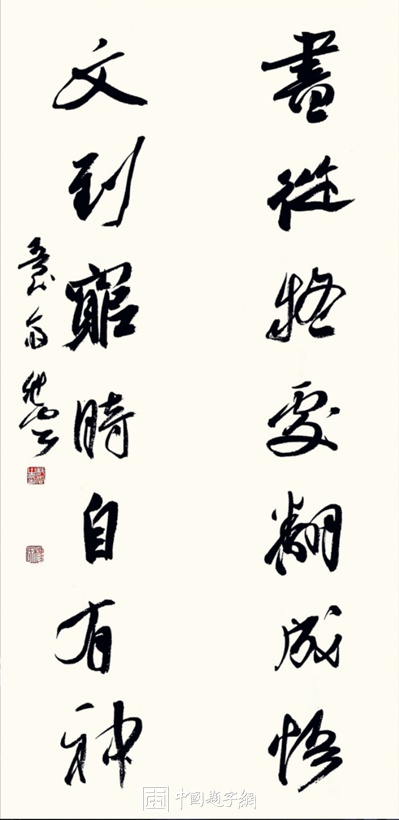 書從疑處翻成悟
文到窮時自有神
中國題字網